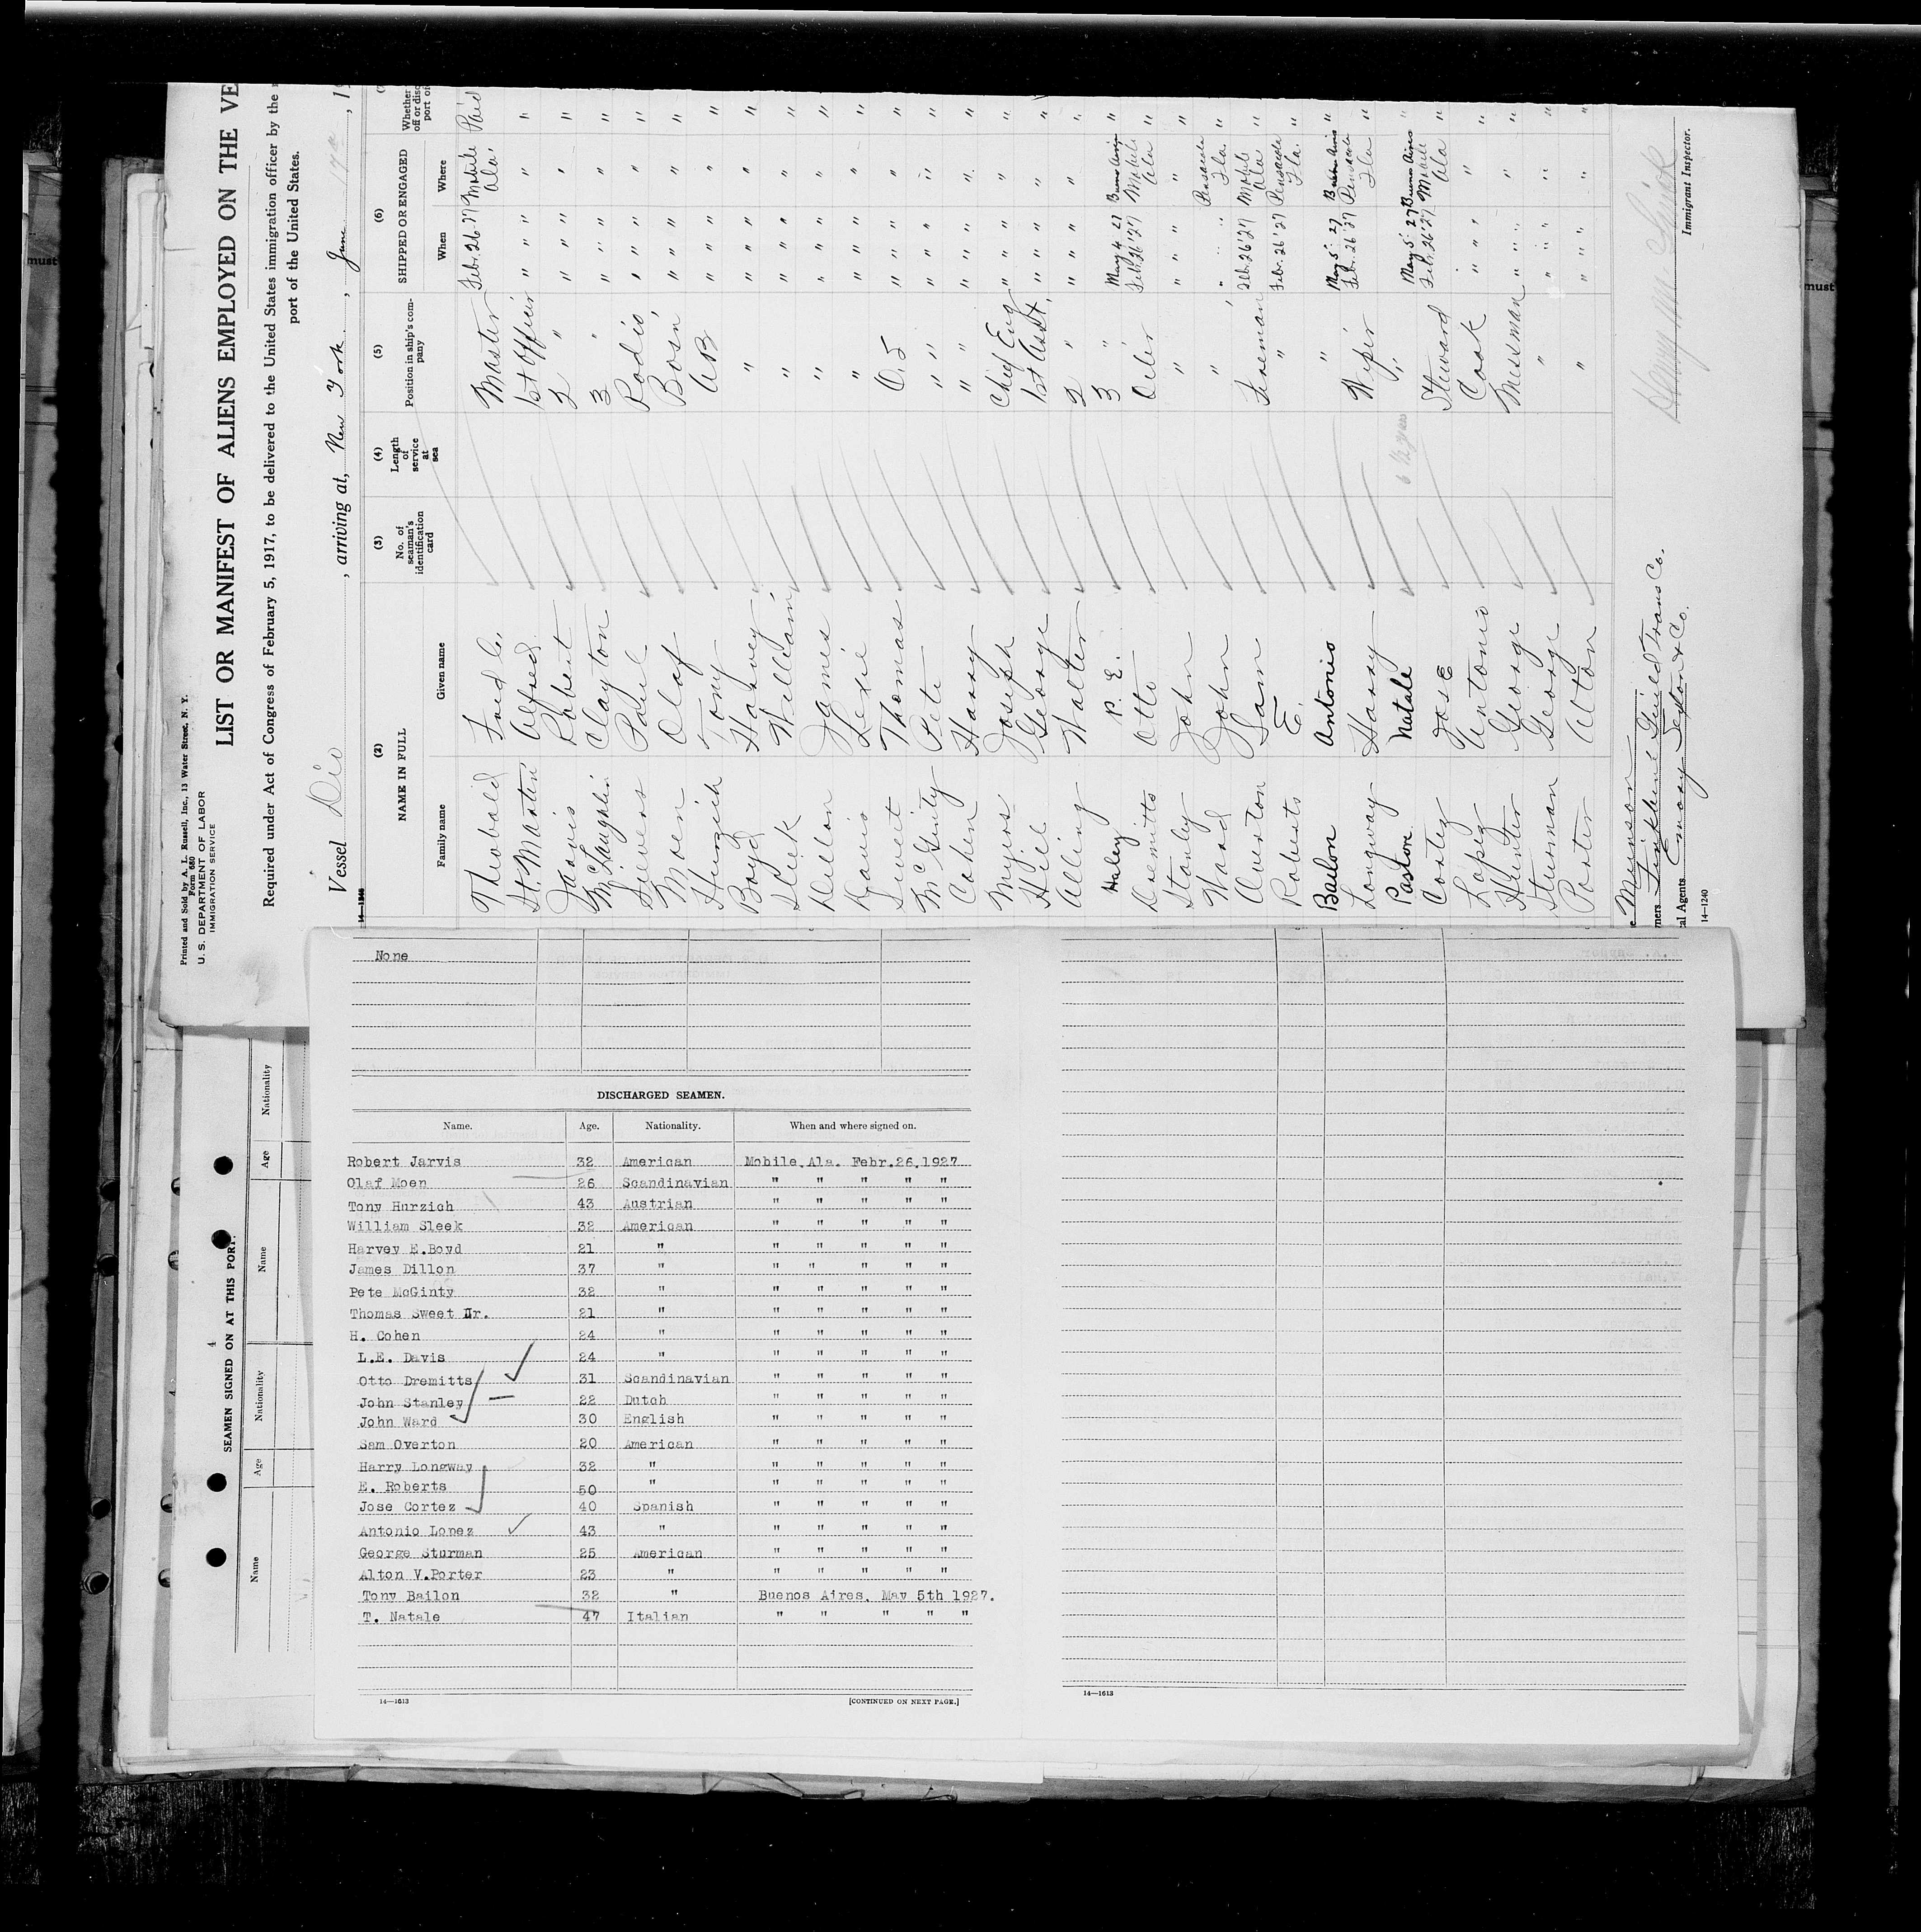 Printed and Sold by A. L. Russell, Inc., 13 Water Street, N. Y.
Form 680
U. S. DEPARTMENT OF LABOR
IMMIGRATION SERVICE
LIST OR MANIFEST OF ALIENS EMPLOYED ON THE VE
Required under Act of Congress of February 5, 1917, to be delivered to the United States immigration officer by the
port of the United States.
Vessel Dio, arriving at, New York, June 17th, 19
(2) (3) (4) (5) (6)
NAME IN FULL No. of seaman's identification card Length of service at sea Position in ship's company SHIPPED OR ENGAGED Whether
Family name Given name When Where
Theobald Fred C. Master Feb. 26-27 Mobile Ala. Paid
St. Martin Alfred 1st Officer " " " " "
Jarvis Robert 2 " " " " " "
McLaughlin Clayton 3 " " " " " "
Sievers Paul Radio " " " " "
Moen Olaf Bosn " " " " "
Hurzich Tony AB " " " " "
Boyd Harvey " " " " " "
Sleek William " " " " " "
Dillon James " " " " " "
Davis Lexie " " " " " "
Sweet Thomas O.S " " " " "
McGinty Pete " " " " " "
Cohen Harry " " " " " "
Meyers Joseph Chief Eng " " " " "
Hill George 1st Asst. " " " " "
Alling Walter 2 " " " " "
Haley P. E. 3 " May 4 27 Buenos Aires "
Dremitts Otto Oiler Feb. 26 '27 Mobile Ala "
Stanley John " " " " "
Ward John " " " " Pensacola Fla. "
Overton Sam Fireman Feb. 26 '27 Mobile Ala "
Roberts E. " Febr. 26 '27 Pensacola Fla. "
Bailon Antonio " May 5: 27 Buenos Aires "
Longway Harry Wiper Febr. 26 '27 Pensacola Fla "
Pastore Natale " May 5: 27 Buenos Aires "
Cortez Jose Steward Febr. 26 '27 Mobile Ala "
Lopez Antonio Cook " " " " "
Hunter George Messman " " " " "
Sturman George " " " " " "
Porter Alton " " " " " "
Munson
Immigrant Inspector.
14—1240
None
DISCHARGED SEAMEN.
Name. Age. Nationality. When and where signed on.
Robert Jarvis 32 American Mobile,Ala. Febr.26,1927
Olaf Moen 26 Scandinavian " " " " "
Tony Hurzich 43 Austrian " " " " "
William Sleek 32 American " " " " "
Harvey E.Boyd 21 " " " " " "
James Dillon 37 " " " " " "
Pete McGinty 32 " " " " " "
Thomas Sweet Jr. 21 " " " " " "
H. Cohen 24 " " " " " "
L.E. Davis 24 " " " " " "
Otto Dremitts 31 Scandinavian " " " " "
John Stanley 22 Dutch " " " " "
John Ward 30 English " " " " "
Sam Overton 20 American " " " " "
Harry Longway 32 " " " " " "
E. Roberts 50 " " " " " "
Jose Cortez 40 Spanish " " " " "
Antonio Lopez 43 " " " " " "
George Sturman 25 American " " " " "
Alton V.Porter 23 " " " " " "
Tony Bailon 32 " Buenos Aires, May 5th 1927.
T. Natale 47 Italian " " " " "
14—1613
[CONTINUED ON NEXT PAGE.]
14—1613
SEAMEN SIGNED ON AT THIS PORT.
Name Age Nationality Name Age Nationality
must
must